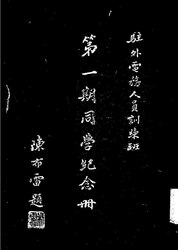 駐外電務人員訓練班
第一期同学纪念册
陳布雷題